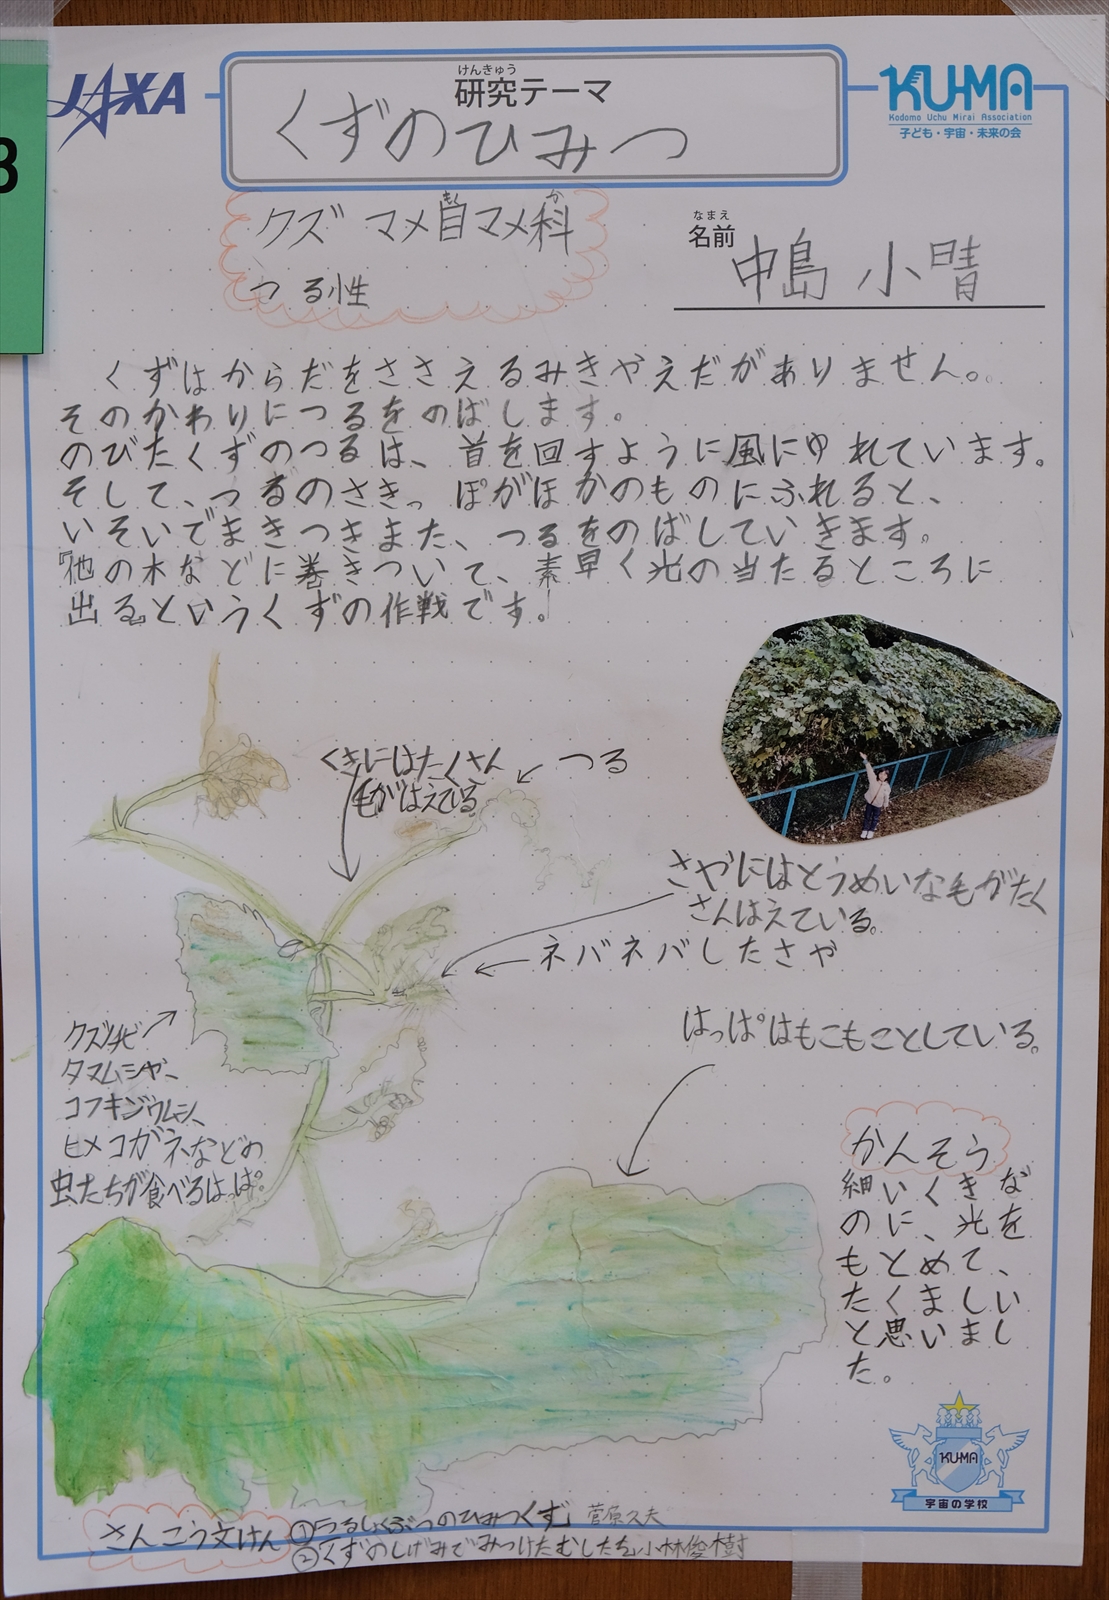 3
JAXA
けんきゅう
研究テーマ
くずのひみつ
KU-MA
Kodomo Uchu Mirai Association
子ども・宇宙・未来の会
もく か
クズ マメ目マメ科
つる性
なまえ
名前
中島 小晴
くずはからだをささえるみきやえだがありません。
そのかわりにつるをのばします。
のびたくずのつるは、首を回すように風にゆれています。
そして、つるのさきっぽがほかのものにふれると、
いそいでまきつきまた、つるをのばしていきます。
『他の木などに巻きついて、素早く光の当たるところに
出る』というくずの作戦です。
くきにはたくさん
毛がはえている。
つる
さやにはとうめいな毛がたく
さんはえている。
ネバネバしたさや
はっぱはもこもことしている。
クズノチビ
タマムシや、
コフキゾウムシ、
ヒメコガネなどの
虫たちが食べるはっぱ。
かんそう
細いくきな
のに、光を
もとめて、
たくましい
と思いまし
た。
KU-MA
宇宙の学校
さんこう文けん ①つるしょくぶつのひみつくず 菅原久夫
②くずのしげみでみつけたむしたち 小林俊樹